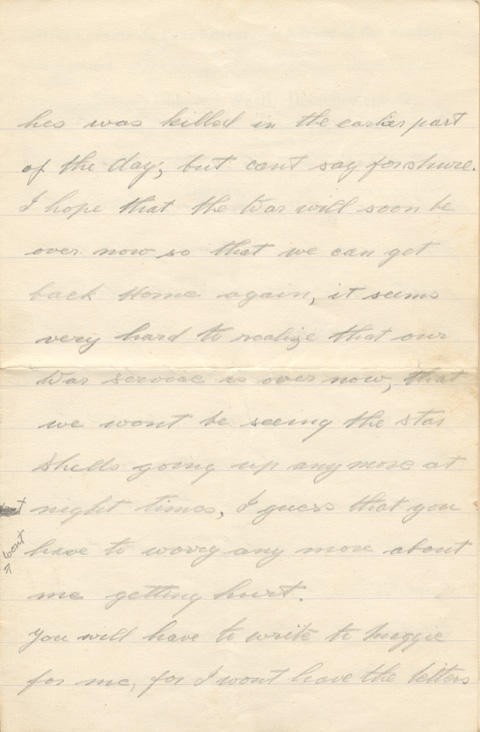 hes was killed in the earlier part
of the day, but cant say for shure.
I hope that the War will soon be
over now so that we can get
back Home again, it seems
very hard to realize that our
War Service is over now, that
we wont be seeing the star
Shells going up any more at
night times, I guess that you
wont
have to worry any more about
me getting hurt.
You will have to write to Maggie
for me, for I wont have the letters